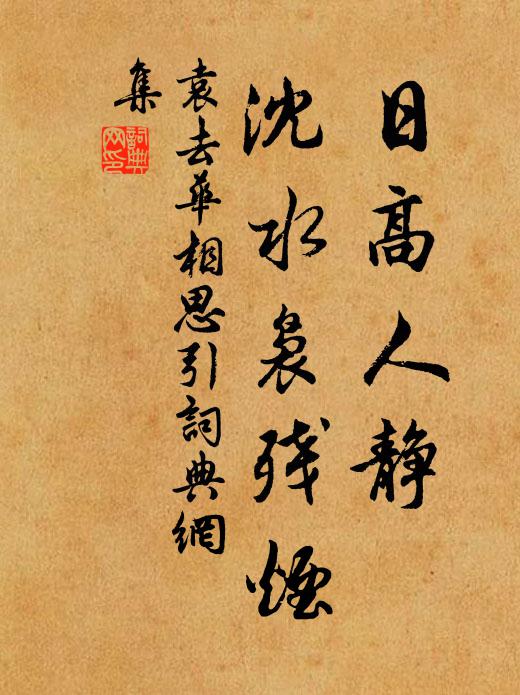 日高人静
沈水袅残烟
袁去華相思引詞典網
集
詞典
网印